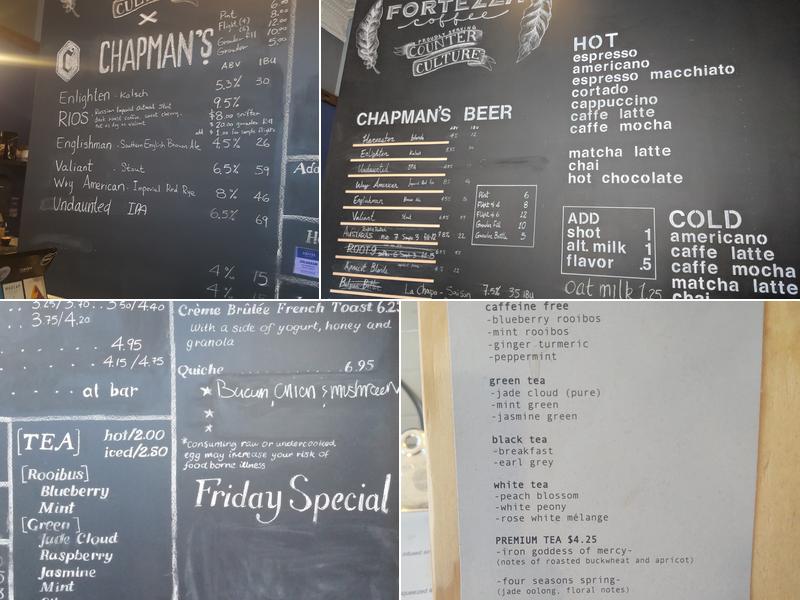 CULTURE
X
CHAPMAN'S
Pint 6.00
Flight (4) 8.00
(6) 12.00
Growler Fill 10.00
Growler 5.00
ABV IBU
Enlighten - Kolsch 5.3% 30
RIOS Russian Imperial Oatmeal Stout 9.5%
$8.00 snifter
$20.00 growler fill
add $1.00 for sample flights
Englishman - Southern English Brown Ale 4.5% 26
Valiant - Stout 6.5% 59
Why American - Imperial Red Rye 8% 46
Undaunted IPA 6.5% 69
4% 15
4%
FORTEZZA
coffee
PROUDLY SERVING
COUNTER
CULTURE
CHAPMAN'S BEER
ABV IBU
Harvester Blonde
Enlighten Kolsch
Undaunted IPA
Why American
Englishman Brown Ale
Valiant Stout
Apricot Blonde
La Chapo - Saison 7.5% 35 IBU
Pint 6
Flight 4 8
Flight 6 12
Growler Fill 10
Growler Bottle 5
HOT
espresso
americano
espresso macchiato
cortado
cappuccino
caffe latte
caffe mocha
matcha latte
chai
hot chocolate
ADD
shot 1
alt. milk 1
flavor .5
Oat milk 1.25
COLD
americano
caffe latte
caffe mocha
matcha latte
chai
3.75/4.20
4.95
4.15/4.75
at bar
[TEA] hot/2.00
iced/2.50
[Rooibus]
Blueberry
Mint
[Green]
Jade Cloud
Raspberry
Jasmine
Mint
Crème Brûlée French Toast 6.25
With a side of yogurt, honey and
granola
Quiche 6.95
Bacon, Onion & mushroom
*Consuming raw or undercooked
egg may increase your risk of
food borne illness
Friday Special
caffeine free
-blueberry rooibos
-mint rooibos
-ginger turmeric
-peppermint
green tea
-jade cloud (pure)
-mint green
-jasmine green
black tea
-breakfast
-earl grey
white tea
-peach blossom
-white peony
-rose white mélange
PREMIUM TEA $4.25
-iron goddess of mercy-
(notes of roasted buckwheat and apricot)
-four seasons spring-
(jade oolong, floral notes)